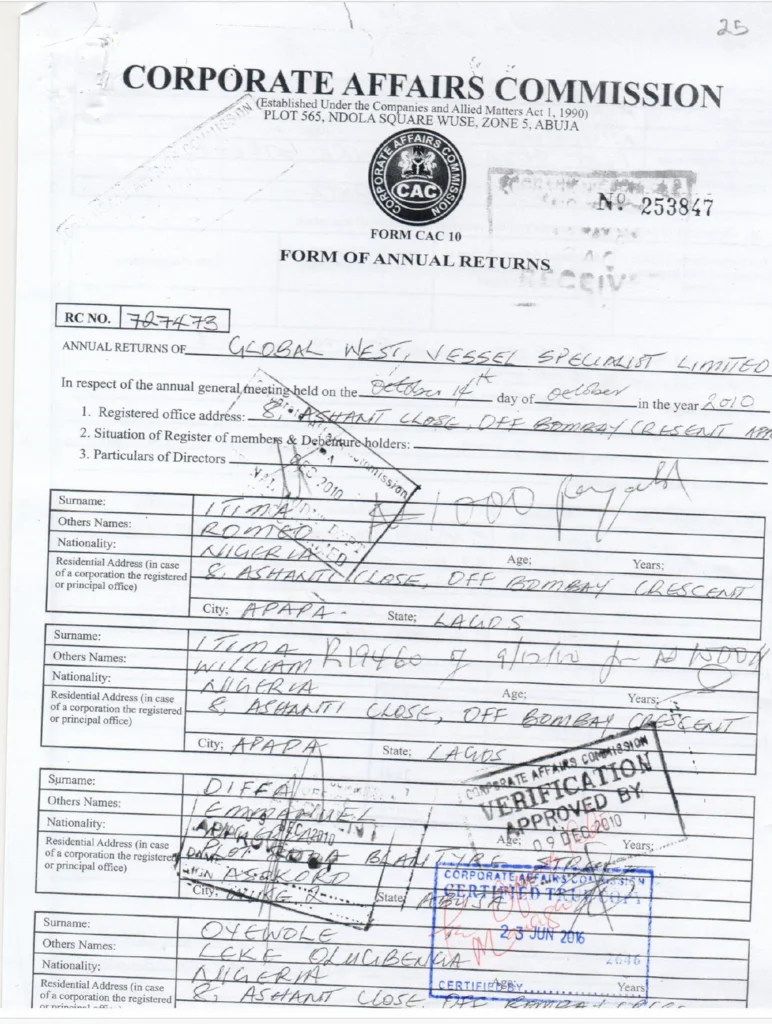 25
CORPORATE AFFAIRS COMMISSION
(Established Under the Companies and Allied Matters Act 1, 1990)
PLOT 565, NDOLA SQUARE WUSE, ZONE 5, ABUJA
CORPORATE AFFAIRS COMMISSION
CAC
Nº 253847
FORM CAC 10
FORM OF ANNUAL RETURNS
RC NO. 727473
ANNUAL RETURNS OF GLOBAL WEST, VESSEL SPECIALIST LIMITED
In respect of the annual general meeting held on the October 14th day of October in the year 2010
1. Registered office address: 8, ASHANT CLOSE, OFF BOMBAY CRESENT
2. Situation of Register of members & Debenture holders:
3. Particulars of Directors
DEC 2010
Surname: ITIMA
Others Names: ROMEO
Nationality: NIGERIA Age; Years;
Residential Address (in case of a corporation the registered or principal office) 8, ASHANTI CLOSE, OFF BOMBAY CRESCENT
City; APAPA. State; LAGOS
Surname: ITIMA
Others Names: WILLIAM
Nationality: NIGERIA Age; Years;
Residential Address (in case of a corporation the registered or principal office) 8, ASHANTI CLOSE, OFF BOMBAY CRESCENT
City; APAPA State; LAGOS
CORPORATE AFFAIRS COMMISSION
VERIFICATION
APPROVED BY
09 DEC 2010
Surname: DIFFA
Others Names: EMMANUEL
Nationality: Age; Years;
Residential Address (in case of a corporation the registered or principal office) BLANTYRE
City; State; ABUJA
APPROVED
DEC 2010
CORPORATE AFFAIRS COMMISSION
CERTIFIED TRUE COPY
23 JUN 2016
CERTIFIED BY
Surname: OYEWOLE
Others Names: LEKE OLUGBENGA
Nationality: NIGERIA Age; Years
Residential Address (in case of a corporation the registered or principal office) 8, ASHANT CLOSE, OFF